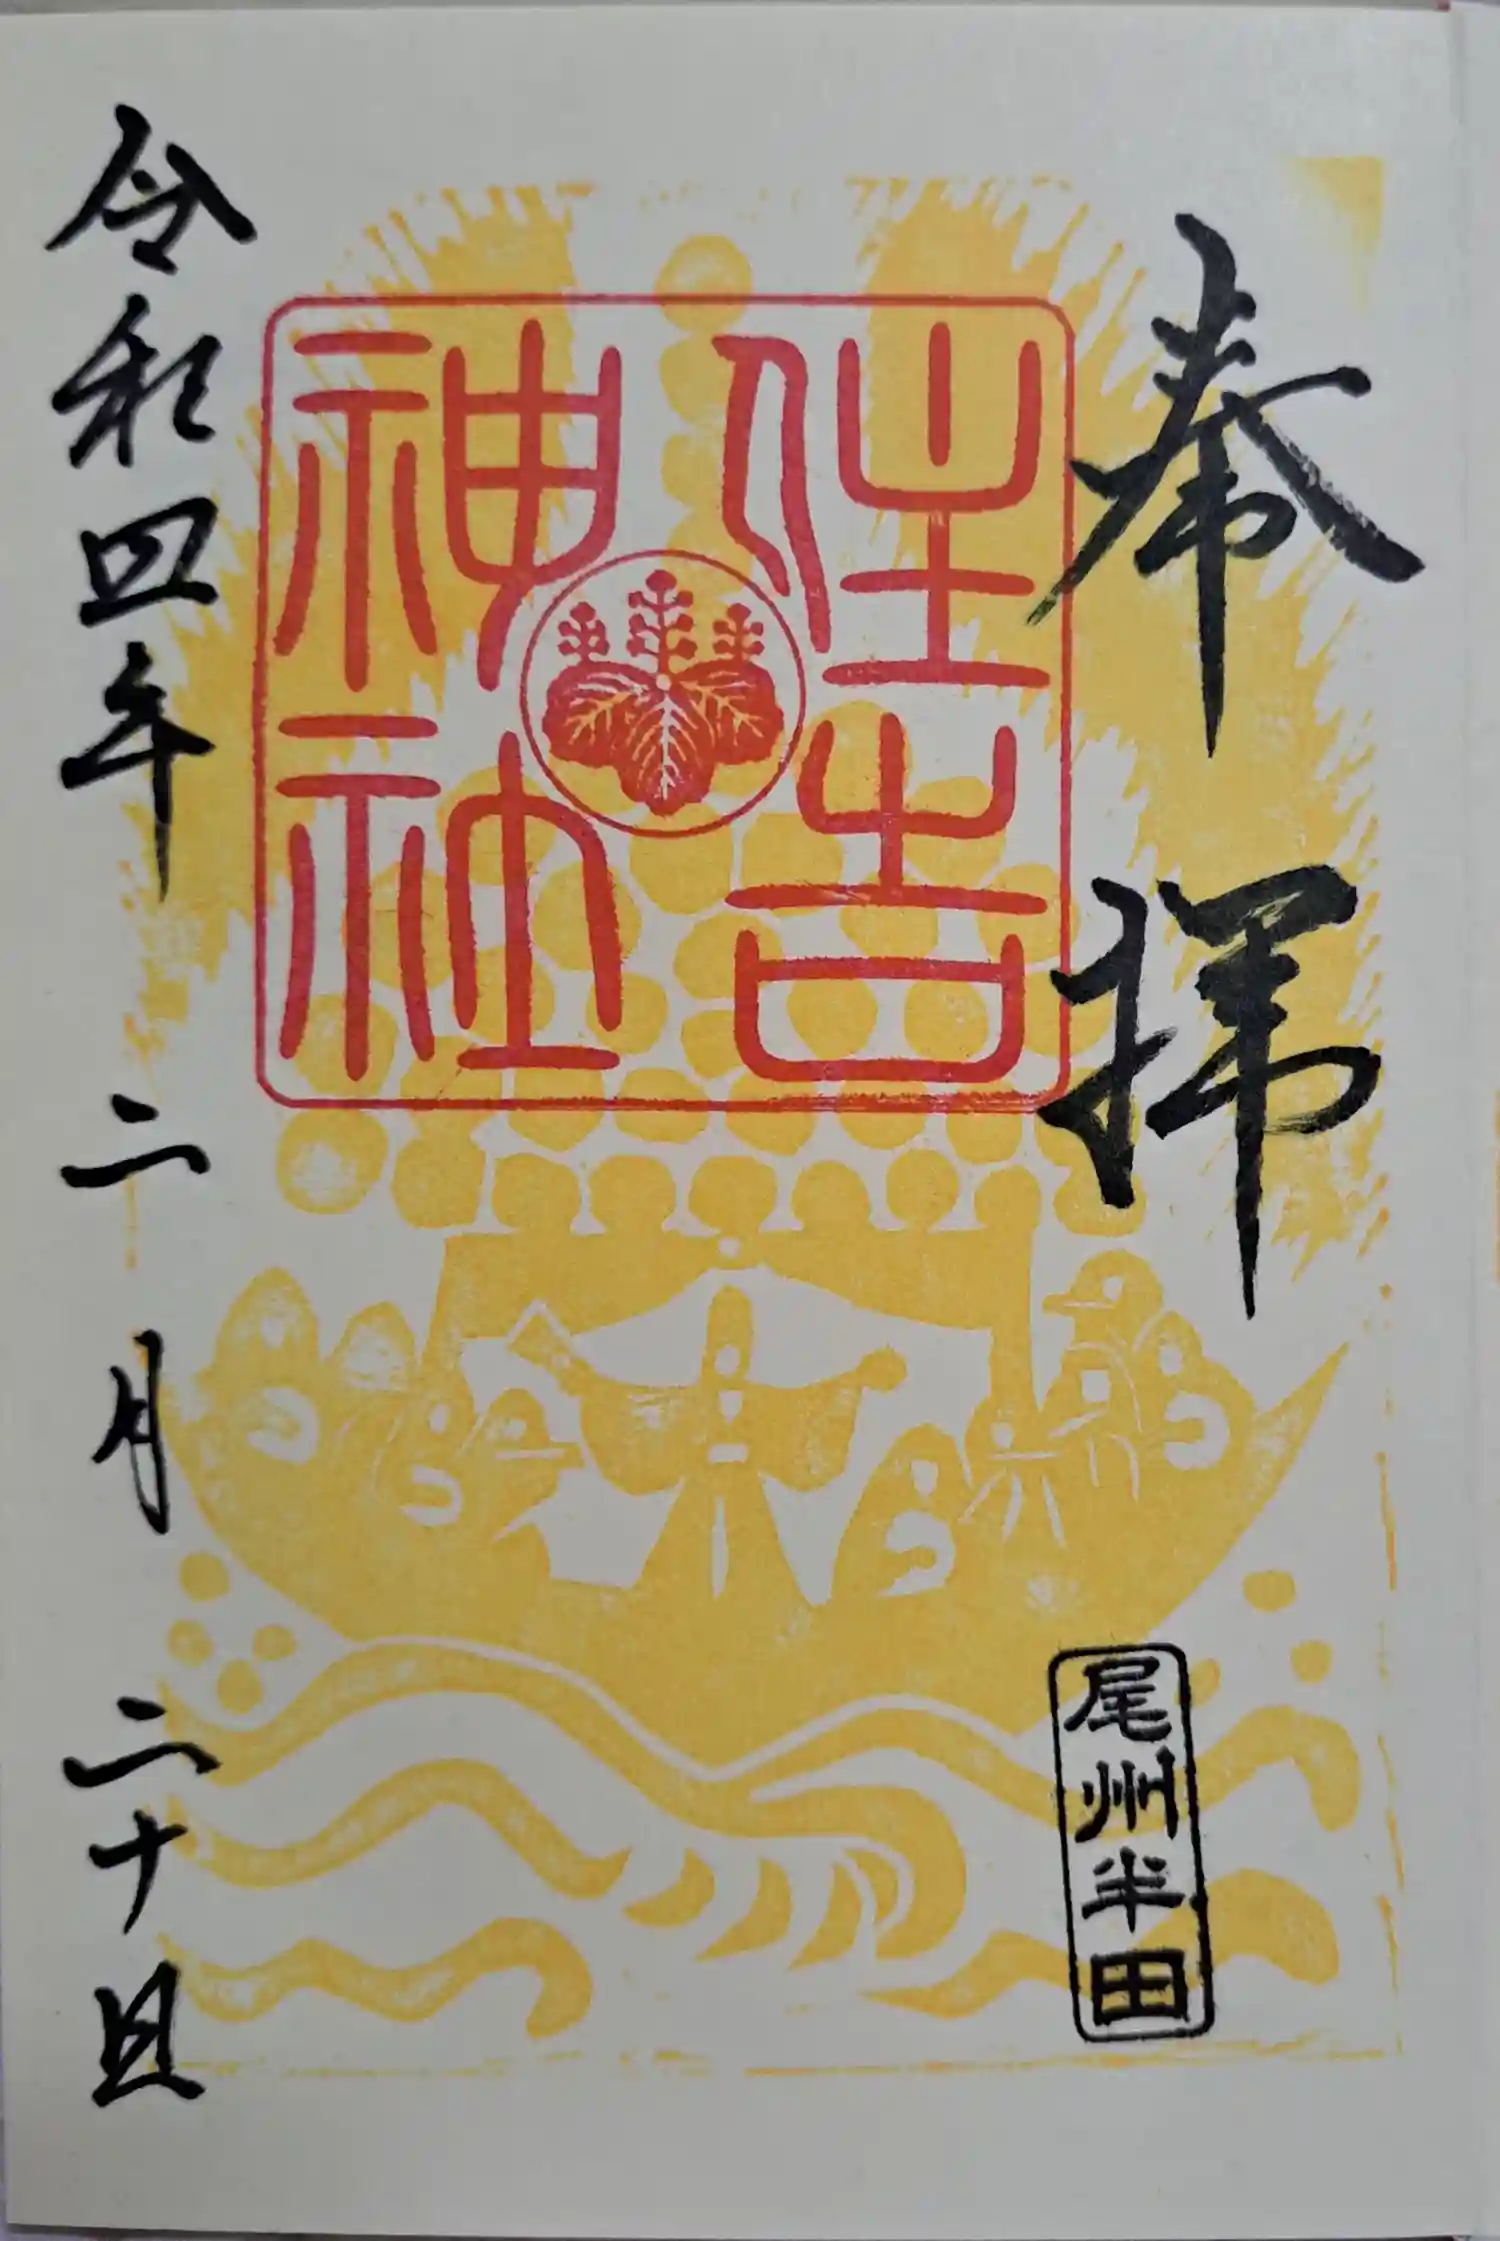 奉拝
尾州半田
住吉
神社
令和四年二月二十日